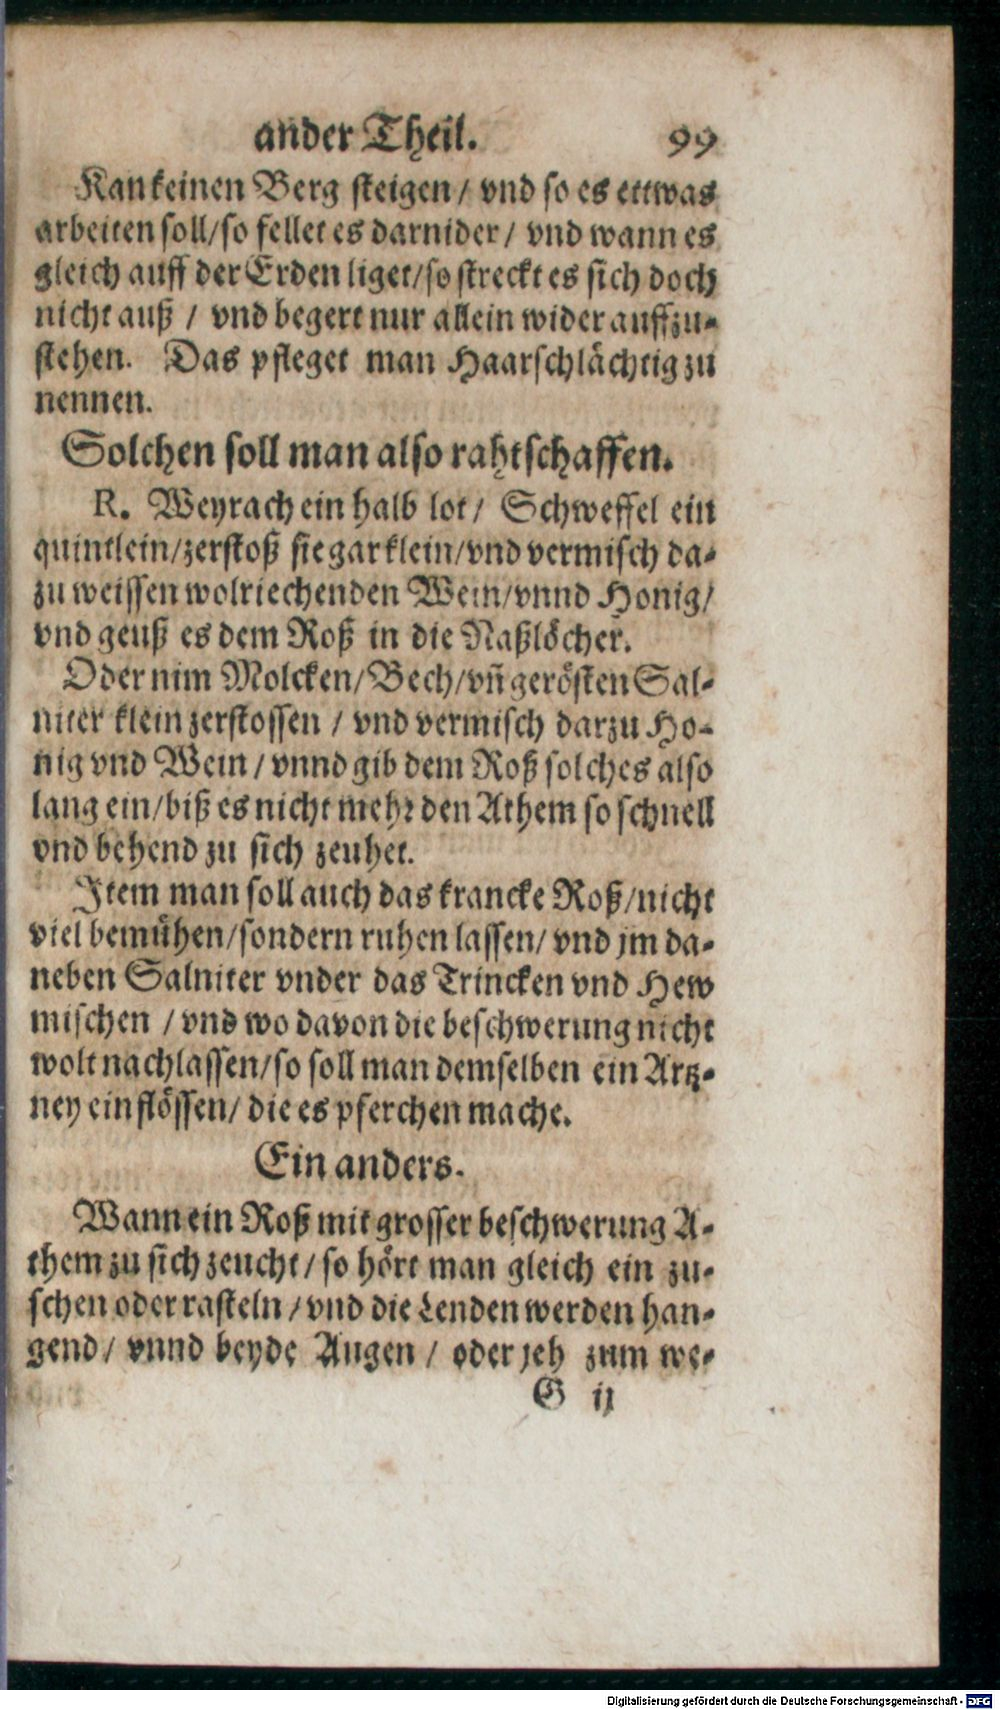 ander Theil. 99
Kan keinen Berg steigen / vnd so es ettwas
arbeiten soll/so fellet es darnider / vnd wann es
gleich auff der Erden liget/so streckt es sich doch
nicht auß / vnd begert nur allein wider auffzu-
stehen. Das pfleget man Haarschlächtig zu
nennen.
Solchen soll man also rahtschaffen.
R. Weyrach ein halb lot / Schweffel ein
quintlein/zerstoß sie gar klein/vnd vermisch da-
zu weissen wolriechenden Wein/vnnd Honig/
vnd geuß es dem Roß in die Naßlöcher.
Oder nim Molcken/Bech/vñ gerösten Sal-
niter klein zerstossen / vnd vermisch darzu Ho-
nig vnd Wein / vnnd gib dem Roß solches also
lang ein/biß es nicht mehr den Athem so schnell
vnd behend zu sich zeuhet.
Item man soll auch das krancke Roß/nicht
viel bemühen/sondern ruhen lassen/ vnd jm da-
neben Salniter vnder das Trincken vnd Hew
mischen / vnd wo davon die beschwerung nicht
wolt nachlassen/so soll man demselben ein Artz-
ney einflössen/ die es pferchen mache.
Ein anders.
Wann ein Roß mit grosser beschwerung A-
them zu sich zeucht/ so hört man gleich ein zu-
schen oder rasteln /vnd die Lenden werden han-
gend / vnnd beyde Augen / oder jeh zum we-
G ij
Digitalisierung gefördert durch die Deutsche Forschungsgemeinschaft - DFG